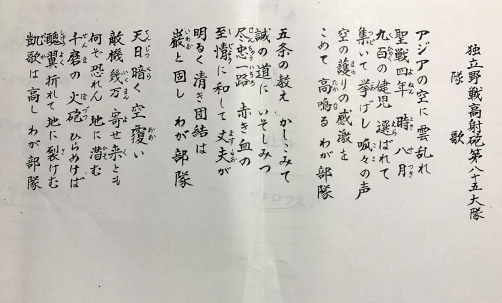 独立野戦高射砲第八十五大隊
隊歌
アジアの空に 雲乱れ
聖戦四年 時 八月
九百の健児 選ばれて
集いて挙げし 喊々の声
空の護りの感激を
こめて高鳴る わが部隊
五条の教え かしこみて
誠の道に いそしみつ
尽忠一路 赤き血の
至情に和して 丈夫が
明るく清き団結は
巌と固し わが部隊
天日暗く 空覆い
敵機幾万 寄せ来とも
何ぞ恐れん 地に潜む
千磨の火砲 ひらめけば
醜翼折れて 地に裂けむ
凱歌は高し わが部隊